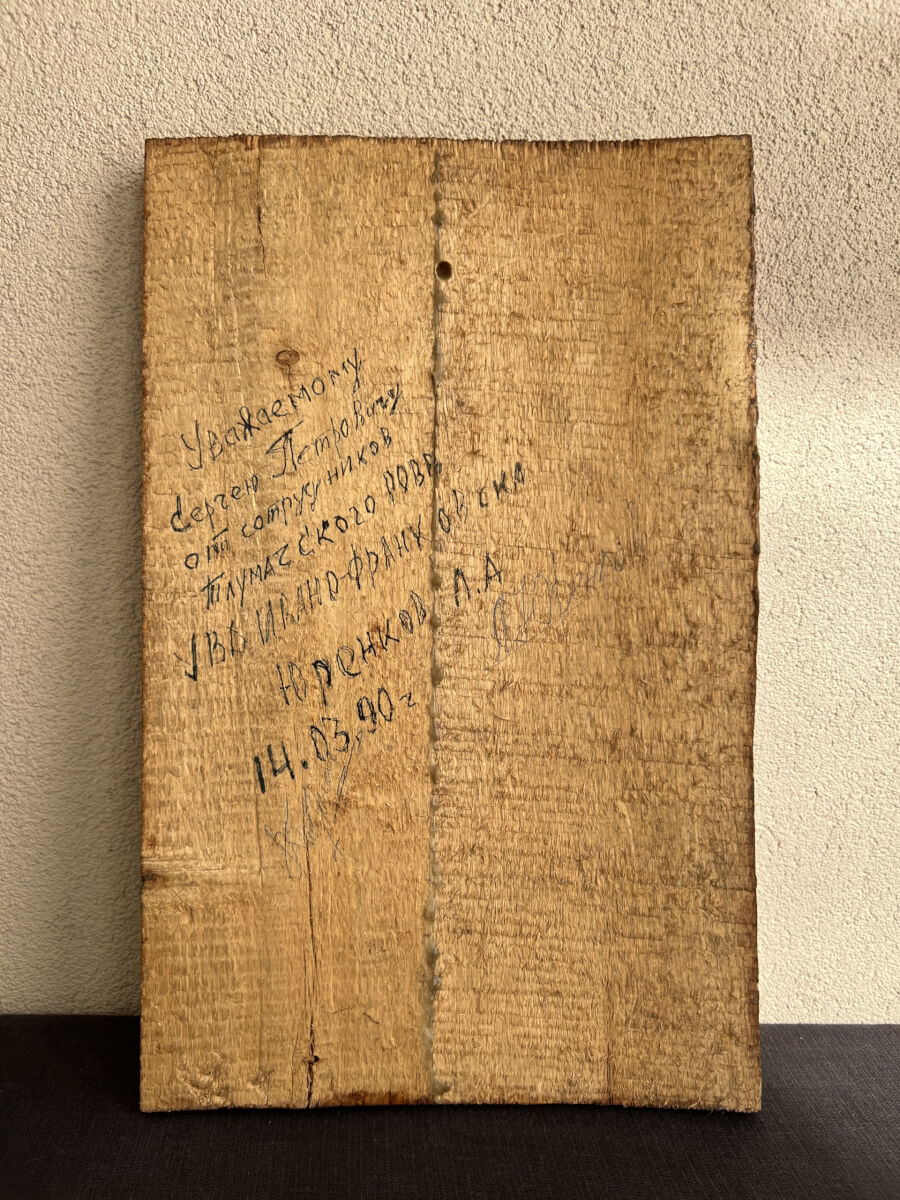 Уважаемому
Сергею Петровичу
от сотрудников
Тлумачского РОВД
УВД ИВАНО-ФРАНКОВСКА
Юренков А.А
14.03.90г